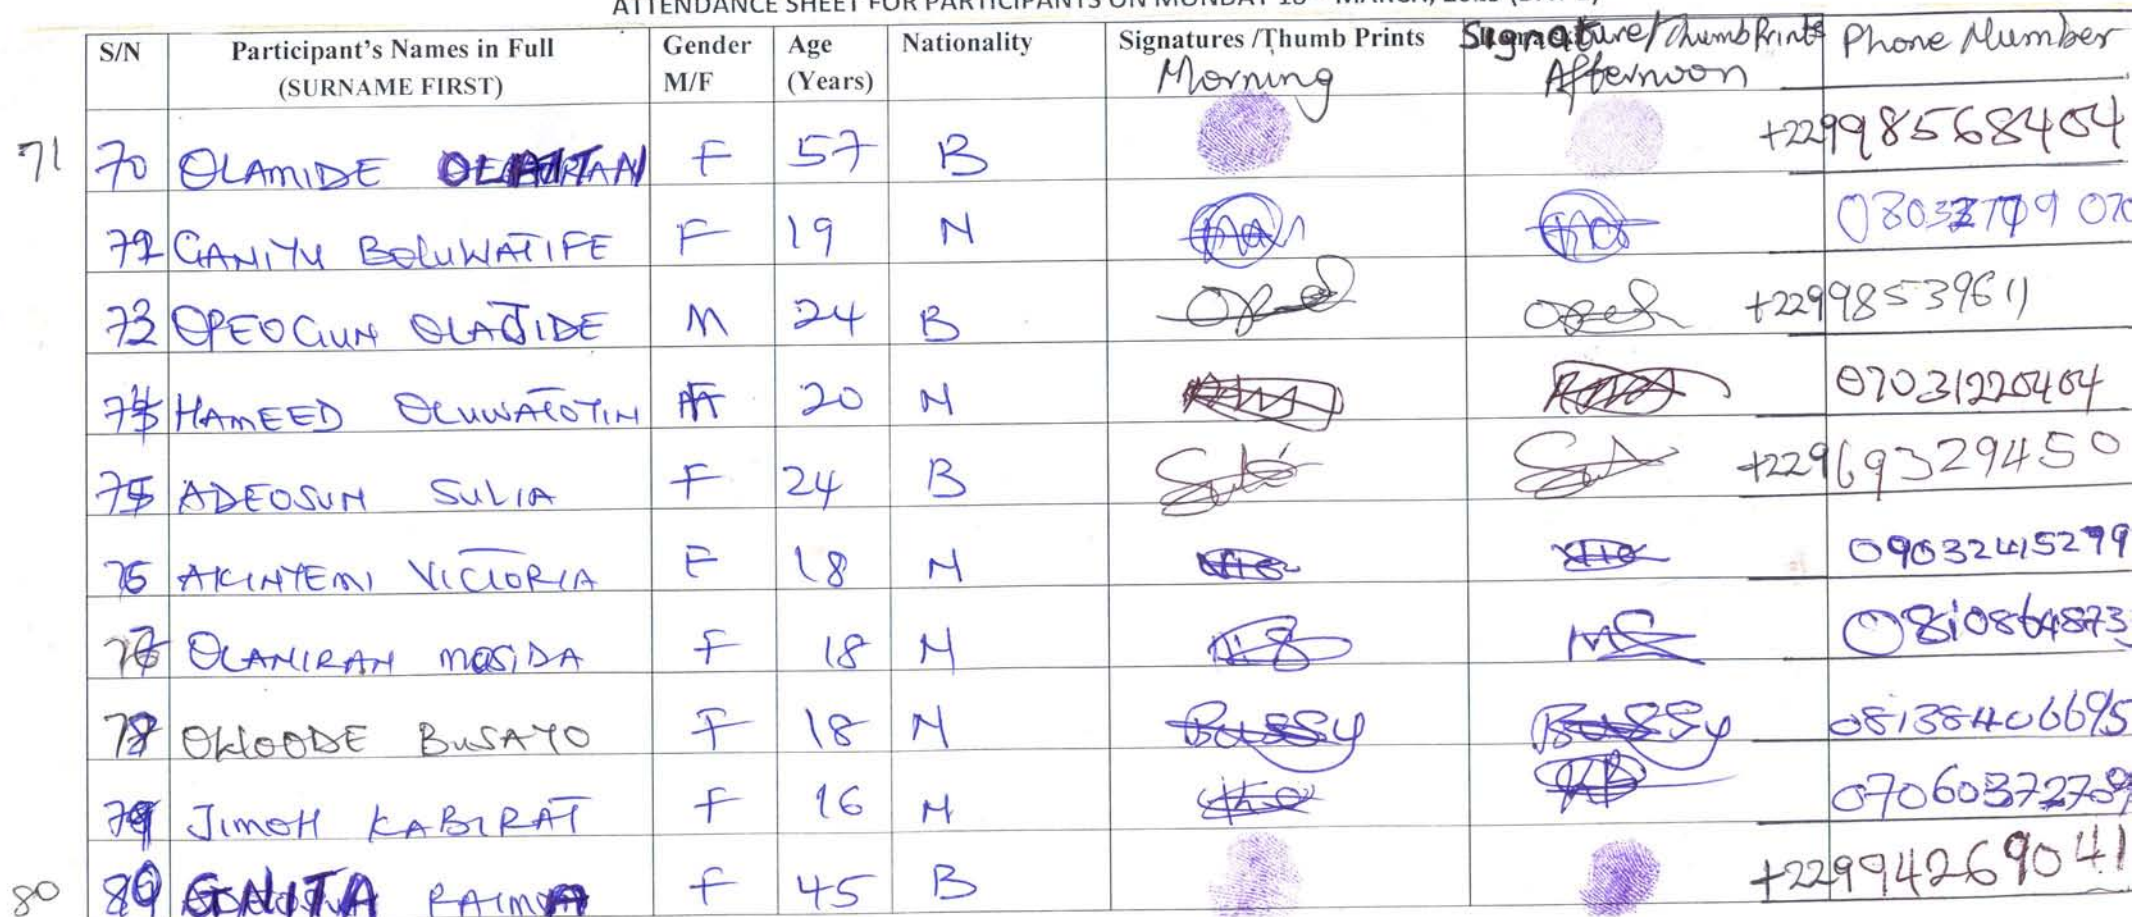 ATTENDANCE SHEET FOR PARTICIPANTS ON MONDAY 18 MARCH,
S/N Participant's Names in Full (SURNAME FIRST) Gender M/F Age (Years) Nationality Signatures /Thumb Prints Morning Signature/Thumb Prints Afternoon Phone Number
71 70 OLAMIDE F 57 B +22998568404
72 GANIYU BOLUWATIFE F 19 N
73 OPEOGUN OLAJIDE M 24 B +22998539611
74 HAMEED OLUWATOTIN 20 N 07031220404
75 ADEOSUN SULIA F 24 B +22969329450
76 AKINYEMI VICTORIA F 18 N 09032415299
77 OLANIRAN MOSIDA F 18 N
78 OKLOODE BUSAYO F 18 N Bussy Bussy 08138406695
79 JIMOH KABIRAT F 16 N
80 80 GNITA F 45 B +22994269041